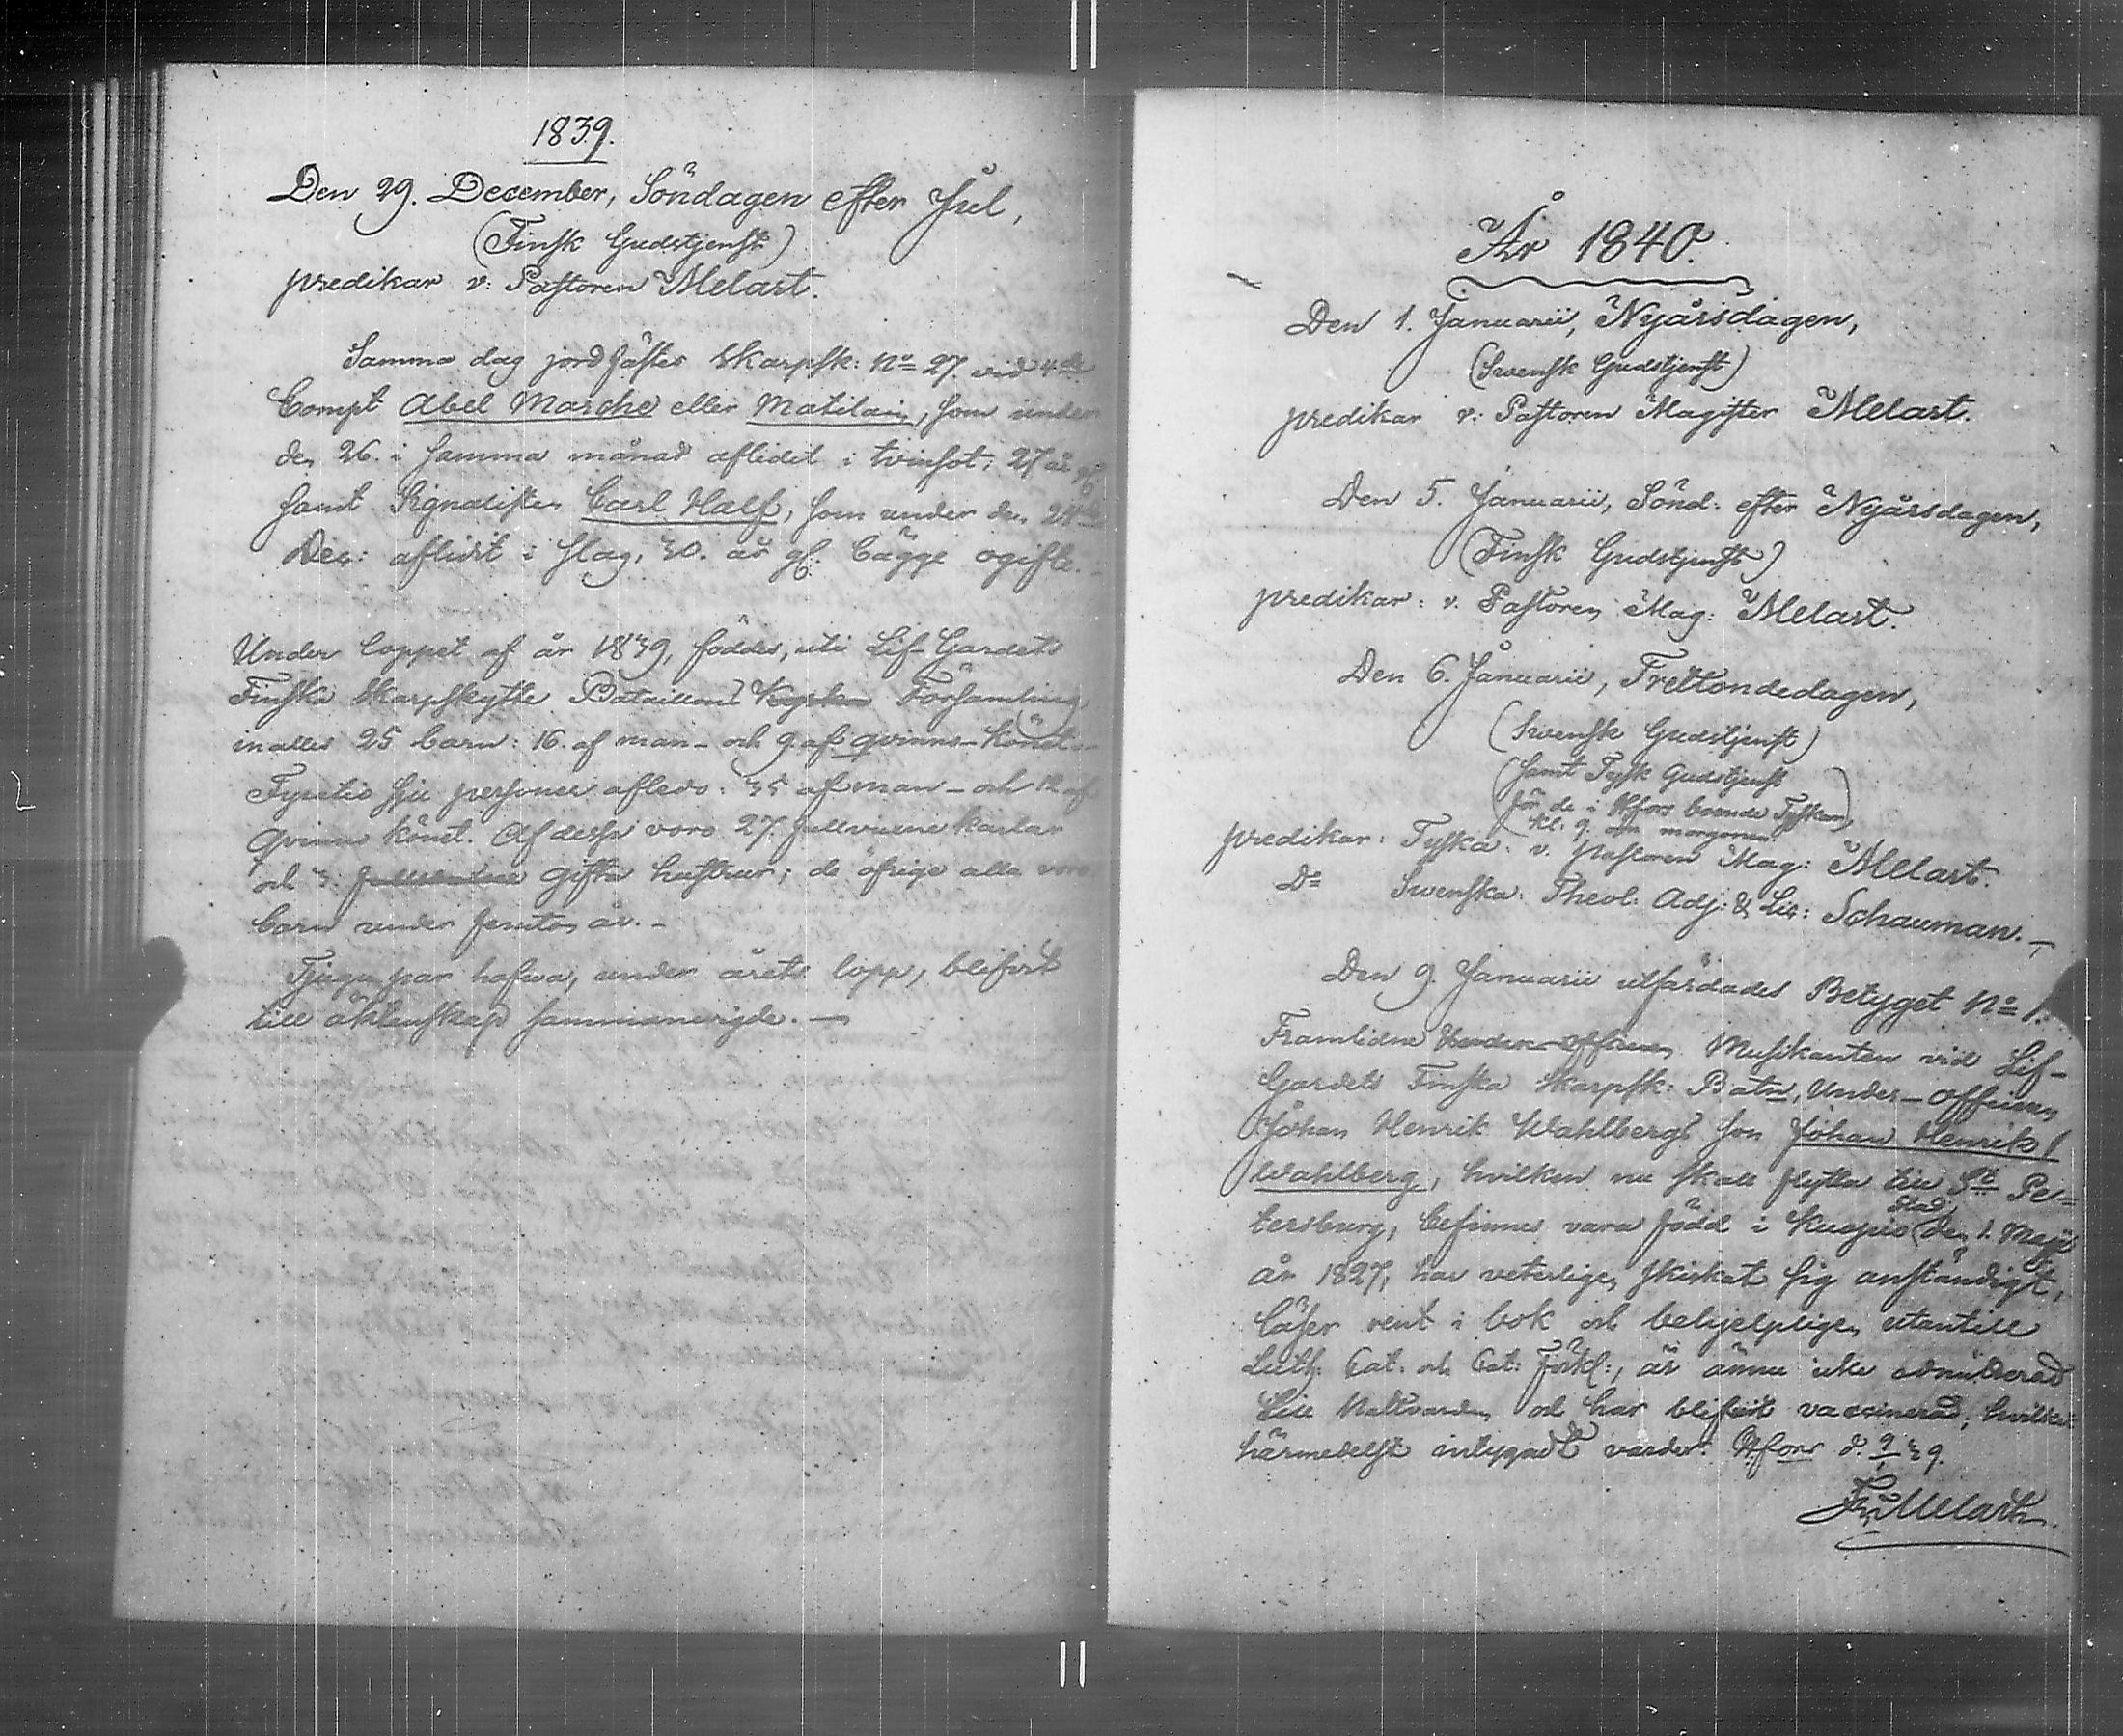 1839.
Den 29. December, Söndagen efter Jul,
(Finsk Gudstjenst)
predikar v: Pastoren Melart.
Samma dag jordfästes Skarpsk: No 27. vid 4de
Compt Abel Marche eller Matilain, som under
den 26. i samma månad aflidit i tvinsot; 27 år gl:
samt Signalisten Carl Half, som under den 24de
Dec: aflidit i slag, 30. år gl: bägge ogifte.
Under loppet af år 1839, föddes, uti Lif-Gardets
Finska Skarpskytte Bataillons Församling
inalles 25 barn: 16. af man- och 9. af qvinns-könet.
Fyratio sju personer afledo: 35 af man- och 12 af
qvinns könet. Af dessa voro 27. fullvuxne karlar
och 3. gifta hustrur; de öfrige alla voro
barn under femton år. -
Tjugu par hafva, under årets lopp, blifvit
till äktenskap sammanvigde. -
År 1840.
Den 1. Januarii, Nyårsdagen,
(Swensk Gudstjenst)
predikar v: Pastoren Magister Melart.
Den 5. Januarii, Sönd: efter Nyårsdagen,
(Finsk Gudstjenst)
predikar: v. Pastoren Mag: Melart.
Den 6. Januarii, Trettondedagen,
(Swensk Gudstjenst)
(samt Tysk Gudstjenst
för de i Hfors boende Tyskar)
kl: 9. om morgonen.
predikar: Tyska: v. Pastoren Mag: Melart.
Do Swenska: Theol. Adj: & Lic: Schauman. -
Den 9. Januarii utfärdades Betyget No 1.
Framlidne Under-officeren Musikanten vid Lif-
Gardets Finska Skarpsk: Batn, Under-officeren
Johan Henrik Wahlbergs son Johan Henrik
Wahlberg, hvilken nu skall flytta till St Pe-
tersburg, befinnes vara född i Kuopio stad den 1. Maji
år 1827, har veterligen skickat sig anständigt,
läser rent i bok och behjelpligen utantill
Luth: Cat: och Cat: Förkl:, är ännu icke admitterad
till Nattvarden och har blifvit vaccinerad; hvilket
härmedelst intygadt varder. Hfors d. 9/1 39.
Fr: Melart.